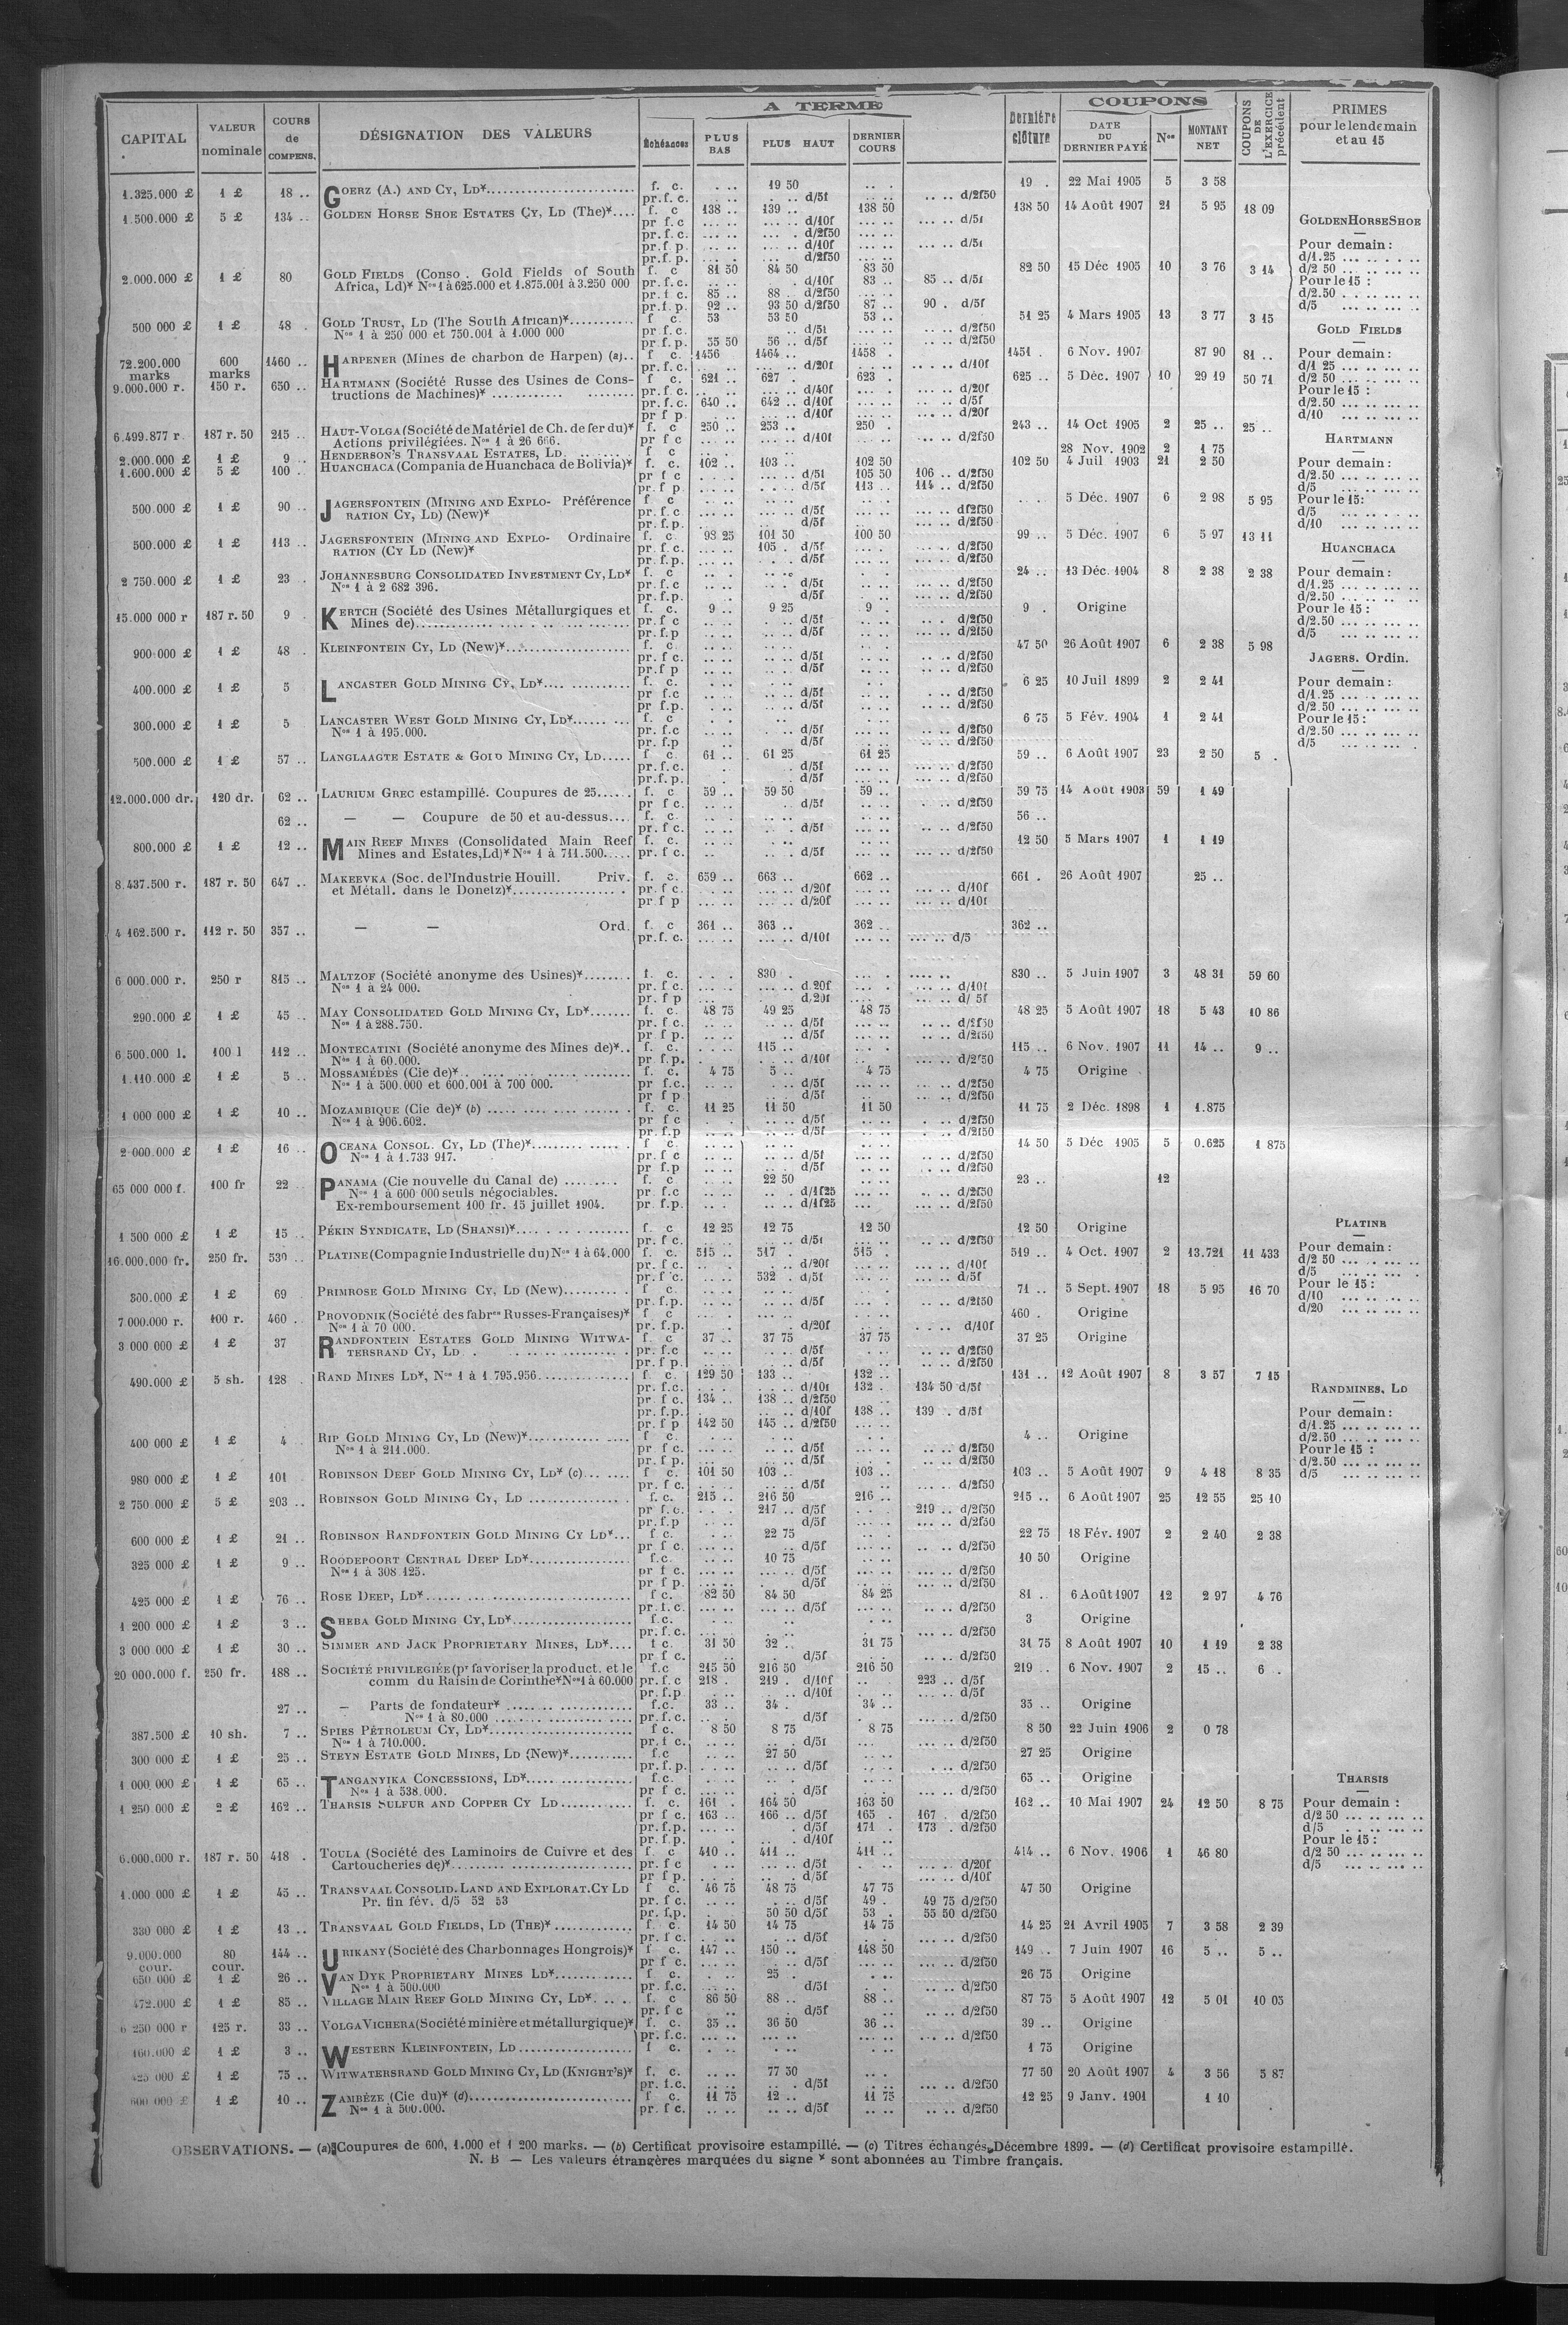 A TERME
COUPONS
CAPITAL | VALEUR nominale | COURS de COMPENS. | DÉSIGNATION DES VALEURS | Échéances | PLUS BAS | PLUS HAUT | DERNIER COURS | Dernière clôture | DATE DU DERNIER PAYÉ | Nos | MONTANT NET | COUPONS DE L'EXERCICE précédent | PRIMES pour le lendemain et au 15
1.325.000 £ | 1 £ | 18 .. | GOERZ (A.) AND CY, LD* | f. c. | 19 50 | 19 . | 22 Mai 1905 | 5 | 3 58
pr. f. c. | d/5f | d/2f50
1.500.000 £ | 5 £ | 134 .. | GOLDEN HORSE SHOE ESTATES CY, LD (The)* | f. c | 138 .. | 139 .. | 138 50 | 138 50 | 14 Août 1907 | 21 | 5 95 | 18 09
pr f c | d/10f | d/5f
pr. f. c. | d/2f50
pr. f p. | d/10f | d/5f
pr. f. p. | d/2f50
2.000.000 £ | 1 £ | 80 | GOLD FIELDS (Conso . Gold Fields of South | f. c | 81 50 | 84 50 | 83 50 | 82 50 | 15 Déc 1905 | 10 | 3 76 | 3 14
Africa, Ld)* Nos 1 à 625.000 et 1.875.001 à 3.250 000 | pr. f. c. | d/10f | 83 .. | 85 .. d/5f
pr. f c. | 85 .. | 88 . d/2f50
pr. f. p. | 92 .. | 93 50 d/2f50 | 87 .. | 90 . d/5f
500 000 £ | 1 £ | 48 . | GOLD TRUST, LD (The South African)* | f c. | 53 | 53 50 | 53 .. | 51 25 | 4 Mars 1905 | 13 | 3 77 | 3 15
Nos 1 à 250 000 et 750.001 à 1.000 000 | pr. f c. | d/5f | d/2f50
pr. f. p. | 55 50 | 56 .. d/5f | d/2f50
72.200.000 marks | 600 marks | 1460 .. | HARPENER (Mines de charbon de Harpen) (a) | f c. | 1456 | 1464 .. | 1458 . | 1451 . | 6 Nov. 1907 | 87 90 | 81 ..
pr. f. c. | d/20f | d/10f
9.000.000 r. | 150 r. | 650 .. | HARTMANN (Société Russe des Usines de Cons- | f c. | 621 .. | 627 . | 623 . | 625 .. | 5 Déc. 1907 | 10 | 29 19 | 50 71
tructions de Machines)* | pr. f. c. | d/40f | d/20f
pr. f. c. | 640 .. | 642 .. d/10f | d/5f
pr f p. | d/10f | d/20f
6.499.877 r. | 187 r. 50 | 215 .. | HAUT-VOLGA (Société de Matériel de Ch. de fer du)* | f c | 250 .. | 253 .. | 250 . | 243 .. | 14 Oct 1905 | 2 | 25 .. | 25 ..
Actions privilégiées. Nos 1 à 26 666. | pr f c | d/10f | d/2f50
2.000.000 £ | 1 £ | 9 .. | HENDERSON'S TRANSVAAL ESTATES, LD. | f c | 28 Nov. 1902 | 2 | 1 75
1.600.000 £ | 5 £ | 100 .. | HUANCHACA (Compania de Huanchaca de Bolivia)* | f. c. | 102 .. | 103 .. | 102 50 | 102 50 | 4 Juil 1903 | 21 | 2 50
pr f c | d/5f | 105 50 | 106 .. d/2f50
pr f p | d/5f | 113 .. | 114 .. d/2f50
500.000 £ | 1 £ | 90 .. | JAGERSFONTEIN (MINING AND EXPLO- Préférence | f c | 5 Déc. 1907 | 6 | 2 98 | 5 95
RATION CY, LD) (New)* | pr. f. c | d/5f | df2f50
pr. f. p. | d/5f | d/2f50
500.000 £ | 1 £ | 113 .. | JAGERSFONTEIN (MINING AND EXPLO- Ordinaire | f. c. | 93 25 | 101 50 | 100 50 | 99 .. | 5 Déc. 1907 | 6 | 5 97 | 13 11
RATION (CY LD (New)* | pr. f. c. | 105 . d/5f | d/2f50
pr. f.p. | d/5f | d/2f50
2 750.000 £ | 1 £ | 23 . | JOHANNESBURG CONSOLIDATED INVESTMENT CY, LD* | f. c | 24 .. | 13 Déc. 1904 | 8 | 2 38 | 2 38
Nos 1 à 2 682 396. | pr. f. c | d/5f | d/2f50
pr. f.p. | d/5f | d/2f50
15.000 000 r | 187 r. 50 | 9 . | KERTCH (Société des Usines Métallurgiques et | f. c. | 9 .. | 9 25 | 9 . | 9 . | Origine
Mines de) | pr. f c | d/5f | d/2f50
pr. f.p | d/5f | d/2f50
900.000 £ | 1 £ | 48 . | KLEINFONTEIN CY, LD (New)* | f. c. | 47 50 | 26 Août 1907 | 6 | 2 38 | 5 98
pr. f c. | d/5f | d/2f50
pr. f p | d/5f | d/2f50
400.000 £ | 1 £ | 5 | LANCASTER GOLD MINING CY, LD* | f. c. | 6 25 | 10 Juil 1899 | 2 | 2 41
pr f.c | d/5f | d/2f50
pr f.p. | d/5f | d/2f50
300.000 £ | 1 £ | 5 | LANCASTER WEST GOLD MINING CY, LD* | f. c | 6 75 | 5 Fév. 1904 | 1 | 2 41
Nos 1 à 195.000. | pr. f.c | d/5f | d/2f50
pr. f.p | d/5f | d/2f50
500.000 £ | 1 £ | 57 .. | LANGLAAGTE ESTATE & GOLD MINING CY, LD | f c. | 61 .. | 61 25 | 61 25 | 59 .. | 6 Août 1907 | 23 | 2 50 | 5 .
pr. f. c. | d/5f | d/2f50
pr. f. p. | d/5f | d/2f50
12.000.000 dr. | 120 dr. | 62 .. | LAURIUM GREC estampillé. Coupures de 25 | f. c | 59 .. | 59 50 | 59 .. | 59 75 | 14 Août 1903 | 59 | 1 49
pr f c. | d/5f | d/2f50
62 .. | — — Coupure de 50 et au-dessus | f. c | 56 ..
pr. f c. | d/5f | d/2f50
800.000 £ | 1 £ | 12 .. | MAIN REEF MINES (Consolidated Main Reef | f. c. | 12 50 | 5 Mars 1907 | 1 | 1 19
Mines and Estates, Ld)* Nos 1 à 711.500 | pr. f c. | d/5f | d/2f50
8.437.500 r. | 187 r. 50 | 647 .. | MAKEEVKA (Soc. de l'Industrie Houill. Priv. | f. c. | 659 .. | 663 .. | 662 .. | 661 . | 26 Août 1907 | 25 ..
et Métall. dans le Donetz)* | pr. f c. | d/20f | d/10f
pr f p | d/20f | d/10f
4 162.500 r. | 112 r. 50 | 357 .. | — — Ord. | f. c | 361 .. | 363 .. | 362 .. | 362 ..
pr. f. c. | d/10f | d/5
6 000 000 r. | 250 r | 815 .. | MALTZOF (Société anonyme des Usines)* | f. c. | 830 . | 830 .. | 5 Juin 1907 | 3 | 48 31 | 59 60
Nos 1 à 24 000. | pr. f c. | d 20f | d/10f
pr. f p | d/20f | d/ 5f
290.000 £ | 1 £ | 45 .. | MAY CONSOLIDATED GOLD MINING CY, LD* | f. c. | 48 75 | 49 25 | 48 75 | 48 25 | 5 Août 1907 | 18 | 5 43 | 10 86
Nos 1 à 288.750. | pr. f c. | d/5f | d/2f50
pr f p. | d/5f | d/2f50
6.500.000 l. | 100 l | 112 .. | MONTECATINI (Société anonyme des Mines de)* | f. c. | 115 .. | 115 .. | 6 Nov. 1907 | 11 | 14 .. | 9 ..
Nos 1 à 60.000. | pr. f.p. | d/10f | d/2f50
1.110.000 £ | 1 £ | 5 .. | MOSSAMÉDÈS (Cie de)* | f. c. | 4 75 | 5 .. | 4 75 | 4 75 | Origine
Nos 1 à 500.000 et 600.001 à 700 000. | pr f.c. | d/5f | d/2f50
pr f p | d/5f | d/2f50
1 000 000 £ | 1 £ | 10 .. | MOZAMBIQUE (Cie de)* (b) | f. c. | 11 25 | 11 50 | 11 50 | 11 75 | 2 Déc. 1898 | 1 | 1.875
Nos 1 à 906.602. | pr f c | d/5f | d/2f50
pr. f.p | d/5f | d/2f50
2.000.000 £ | 1 £ | 16 .. | OCEANA CONSOL. CY, LD (The)* | f c | 14 50 | 5 Déc 1905 | 5 | 0.625 | 1 875
Nos 1 à 1.733 917. | pr. f c | d/5f | d/2f50
pr f.p | d/5f | d/2f50
65 000 000 f. | 100 fr | 22 .. | PANAMA (Cie nouvelle du Canal de) | f. c | 22 50 | 23 .. | 12
Nos 1 à 600 000 seuls négociables. | pr. f.c | d/1f25 | d/2f50
Ex-remboursement 100 fr. 15 juillet 1904. | pr f.p. | d/1f25 | d/2f50
1 500 000 £ | 1 £ | 15 .. | PÉKIN SYNDICATE, LD (SHANSI)* | f. c | 12 25 | 12 75 | 12 50 | 12 50 | Origine
pr. f c. | d/5f | d/2f50
16.000.000 fr. | 250 fr. | 530 .. | PLATINE (Compagnie Industrielle du) Nos 1 à 64.000 | f. c. | 515 .. | 517 . | 515 . | 519 .. | 4 Oct. 1907 | 2 | 13.721 | 11 433
pr. f c. | d/20f | d/10f
pr. f c. | 532 . d/5f | d/5f
300.000 £ | 1 £ | 69 | PRIMROSE GOLD MINING CY, LD (New) | f c | 71 .. | 5 Sept. 1907 | 18 | 5 95 | 16 70
pr. f.p. | d/5f | d/2f50
7 000.000 r. | 100 r. | 460 .. | PROVODNIK (Société des fabres Russes-Françaises)* | f. c | 460 . | Origine
Nos 1 à 70 000. | pr. f.p. | d/20f | d/10f
3 000 000 £ | 1 £ | 37 | RANDFONTEIN ESTATES GOLD MINING WITWA- | f. c | 37 .. | 37 75 | 37 75 | 37 25 | Origine
TERSRAND CY, LD | pr. f.c | d/5f | d/2f50
pr f p. | d/5f | d/2f50
490.000 £ | 5 sh. | 128 . | RAND MINES LD*, Nos 1 à 1 795.956 | f c. | 129 50 | 133 .. | 132 .. | 131 .. | 12 Août 1907 | 8 | 3 57 | 7 15
pr. f.c. | d/10f | 132 . | 134 50 d/5f
pr. f c. | 134 .. | 138 .. d/2f50
pr. f.p. | d/10f | 138 .. | 139 . d/5f
pr f p | 142 50 | 145 .. d/2f50
400 000 £ | 1 £ | 4 . | RIP GOLD MINING CY, LD (New)* | f c. | 4 .. | Origine
Nos 1 à 211.000. | pr f c. | d/5f | d/2f50
pr. f p. | d/5f | d/2f50
980 000 £ | 1 £ | 101 | ROBINSON DEEP GOLD MINING CY, LD* (c) | f c. | 101 50 | 103 .. | 103 .. | 103 .. | 5 Août 1907 | 9 | 4 18 | 8 35
pr. f c. | d/5f | d/2f50
2 750 000 £ | 5 £ | 203 .. | ROBINSON GOLD MINING CY, LD | f. c. | 215 .. | 216 50 | 216 .. | 215 .. | 6 Août 1907 | 25 | 12 55 | 25 10
pr f. c. | 217 .. d/5f | 219 .. d/2f50
pr. f.p | d/5f | d/2f50
600 000 £ | 1 £ | 21 .. | ROBINSON RANDFONTEIN GOLD MINING CY LD* | f c. | 22 75 | 22 75 | 18 Fév. 1907 | 2 | 2 40 | 2 38
pr f c. | d/5f | d/2f50
325 000 £ | 1 £ | 9 .. | ROODEPOORT CENTRAL DEEP LD* | f.c. | 10 75 | 10 50 | Origine
Nos 1 à 308 125. | pr f c. | d/5f | d/2f50
pr f p. | d/5f | d/2f50
425 000 £ | 1 £ | 76 .. | ROSE DEEP, LD* | f c. | 82 50 | 84 50 | 84 25 | 81 .. | 6 Août 1907 | 12 | 2 97 | 4 76
pr. f. c. | d/5f | d/2f50
1 200 000 £ | 1 £ | 3 .. | SHEBA GOLD MINING CY, LD* | f.c. | 3 | Origine
pr. f.c. | d/2f50
3 000 000 £ | 1 £ | 30 .. | SIMMER AND JACK PROPRIETARY MINES, LD* | f c. | 31 50 | 32 .. | 31 75 | 31 75 | 8 Août 1907 | 10 | 1 19 | 2 38
pr f c. | d/5f | d/2f50
20 000.000 f. | 250 fr. | 188 .. | SOCIÉTÉ PRIVILEGIÉE (pr favoriser la product. et le | f.c | 215 50 | 216 50 | 216 50 | 219 .. | 6 Nov. 1907 | 2 | 15 .. | 6 .
comm du Raisin de Corinthe* Nos 1 à 60.000 | pr. f. c | 218 . | 219 . d/10f | 223 .. d/5f
pr. f.p | d/10f | d/5f
27 .. | — Parts de fondateur* | f.c. | 33 .. | 34 . | 34 .. | 35 .. | Origine
Nos 1 à 80.000 | pr. f.c. | d/5f | d/2f50
387.500 £ | 10 sh. | 7 .. | SPIES PÉTROLEUM CY, LD* | f c. | 8 50 | 8 75 | 8 75 | 8 50 | 22 Juin 1906 | 2 | 0 78
Nos 1 à 710.000. | pr. f c. | d/5f | d/2f50
300 000 £ | 1 £ | 25 .. | STEYN ESTATE GOLD MINES, LD (New)* | f.c | 27 50 | 27 25 | Origine
pr. f.p. | d/5f | d/2f50
1 000,000 £ | 1 £ | 65 .. | TANGANYIKA CONCESSIONS, LD* | f.c. | 65 .. | Origine
Nos 1 à 538.000. | pr f c. | d/5f | d/2f50
1 250 000 £ | 2 £ | 162 .. | THARSIS SULFUR AND COPPER CY LD | f. c. | 161 . | 164 50 | 163 50 | 162 .. | 10 Mai 1907 | 24 | 12 50 | 8 75
pr f c. | 163 .. | 166 .. d/5f | 165 . | 167 . d/2f50
pr. f.p. | d/5f | 171 . | 173 . d/2f50
pr. f p. | d/10f
6.000.000 r. | 187 r. 50 | 418 . | TOULA (Société des Laminoirs de Cuivre et des | f. c | 410 .. | 411 .. | 411 .. | 414 .. | 6 Nov. 1906 | 1 | 46 80
Cartoucheries de)* | pr. f c | d/5f | d/20f
pr f p. | d/5f | d/10f
1.000.000 £ | 1 £ | 45 .. | TRANSVAAL CONSOLID. LAND AND EXPLORAT. CY LD | f c. | 46 75 | 48 75 | 47 75 | 47 50 | Origine
Pr. fin fév. d/5 52 53 | pr. f c. | d/5f | 49 . | 49 75 d/2f50
pr. f.p. | 50 50 d/5f | 53 . | 55 50 d/2f50
330 000 £ | 1 £ | 13 .. | TRANSVAAL GOLD FIELDS, LD (THE)* | f c. | 14 50 | 14 75 | 14 75 | 14 25 | 21 Avril 1905 | 7 | 3 58 | 2 39
pr. f c. | d/5f | d/2f50
9.000.000 cour. | 80 cour. | 144 .. | URIKANY (Société des Charbonnages Hongrois)* | f c. | 147 .. | 150 .. | 148 50 | 149 .. | 7 Juin 1907 | 16 | 5 .. | 5 ..
pr f c. | d/5f | d/2f50
650 000 £ | 1 £ | 26 .. | VAN DYK PROPRIETARY MINES LD* | f c. | 25 . | 26 75 | Origine
Nos 1 à 500.000 | pr. f.c. | d/5f | d/2f50
472.000 £ | 1 £ | 85 .. | VILLAGE MAIN REEF GOLD MINING CY, LD* | f. c | 86 50 | 88 .. | 88 .. | 87 75 | 5 Août 1907 | 12 | 5 01 | 10 05
pr. f c | d/5f | d/2f50
6 250 000 r | 125 r. | 33 .. | VOLGA VICHERA (Société minière et métallurgique)* | f. c. | 35 .. | 36 50 | 36 .. | 39 .. | Origine
pr. f.c. | d/2f50
160.000 £ | 1 £ | 3 .. | WESTERN KLEINFONTEIN, LD | f c. | 1 75 | Origine
425 000 £ | 1 £ | 75 .. | WITWATERSRAND GOLD MINING CY, LD (KNIGHT'S)* | f. c. | 77 50 | 77 50 | 20 Août 1907 | 4 | 3 56 | 5 87
pr. f.c. | d/5f | d/2f50
600 000 £ | 1 £ | 10 .. | ZAMBÈZE (Cie du)* (d) | f c. | 11 75 | 12 .. | 11 75 | 12 25 | 9 Janv. 1901 | 1 10
Nos 1 à 500.000. | pr. f c. | d/5f | d/2f50
GOLDEN HORSE SHOE
Pour demain :
d/1.25
d/2 50
Pour le 15 :
d/2.50
d/5
GOLD FIELDS
Pour demain :
d/1 25
d/2 50
Pour le 15 :
d/2.50
d/10
HARTMANN
Pour demain :
d/2.50
d/5
Pour le 15:
d/5
d/10
HUANCHACA
Pour demain :
d/1.25
d/2.50
Pour le 15 :
d/2.50
d/5
JAGERS. Ordin.
Pour demain :
d/1.25
d/2.50
Pour le 15 :
d/2.50
d/5
PLATINE
Pour demain :
d/2 50
d/5
Pour le 15 :
d/10
d/20
RANDMINES, LD
Pour demain :
d/1.25
d/2.50
Pour le 15 :
d/2.50
d/5
THARSIS
Pour demain :
d/2 50
d/5
Pour le 15 :
d/2 50
d/5
OBSERVATIONS. — (a) Coupures de 600, 1.000 et 1 200 marks. — (b) Certificat provisoire estampillé. — (c) Titres échangés, Décembre 1899. — (d) Certificat provisoire estampillé.
N. B — Les valeurs étrangères marquées du signe * sont abonnées au Timbre français.